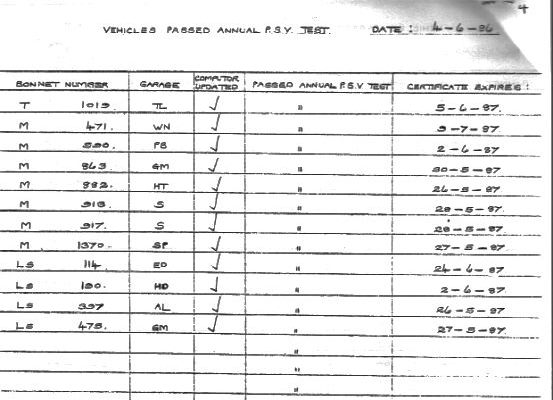 4
VEHICLES PASSED ANNUAL P.S.V. TEST. DATE: 4-6-86
BONNET NUMBER GARAGE COMPUTOR UPDATED PASSED ANNUAL P.S.V TEST CERTIFICATE EXPIRES:
T 1013 TL ✓ " 5-6-87.
M 471. WN ✓ " 3-7-87.
M 590. PB ✓ " 2-6-87
M 863 GM ✓ " 30-5-87.
M 882. HT ✓ " 26-5-87
M 913. S ✓ " 28-5-87
M 917. S ✓ " 28-5-87
M 1370. SP ✓ " 27-5-87.
LS 114. ED ✓ " 24-6-87.
LS 190. HD ✓ " 2-6-87.
LS 397 AL ✓ " 26-5-87
LS 475. GM ✓ " 27-5-87.
"
"
"